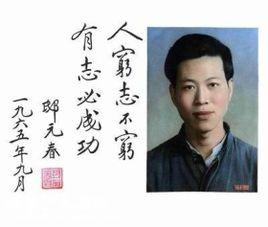 人窮志不窮
有志必成功
邸元春
一九六五年九月